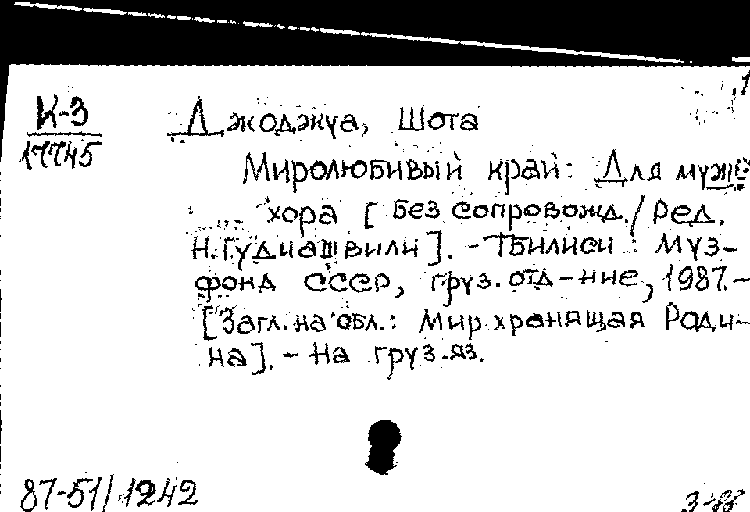 К-3
17745
Джоджуа, Шота
Миролюбивый край: Для муж.
хора [без сопровожд./Ред.
Н.Гудиашвили]. - Тбилиси: Муз-
фонд СССР, груз. отд-ние, 1987.-
[Загл. на обл.: Мир хранящая Роди-
на]. - На груз.яз.
87-51/1242
3-88